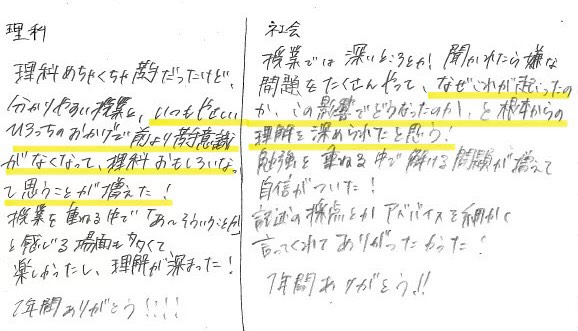 理科
理科めちゃくちゃ苦手だったけど、
分かりやすい授業と、いつもやさしい
ひろっちのおかげで前より苦手意識
がなくなって、理科おもしろいな
って思うことが増えた！
授業を重ねる中で「あ〜そういうことか」
と感じる場面も多くて
楽しかったし、理解が深まった！
1年間ありがとう！！！！
社会
授業では深いところとか、聞かれたら嫌な
問題をたくさんやって、なぜこれが起こったの
か、この影響でどうなったのか、と根本からの
理解を深められたと思う！
勉強を重ねる中で解ける問題が増えて
自信がついた！
記述の採点とかアドバイスを細かく
言ってくれてありがたかった！
1年間ありがとう!!